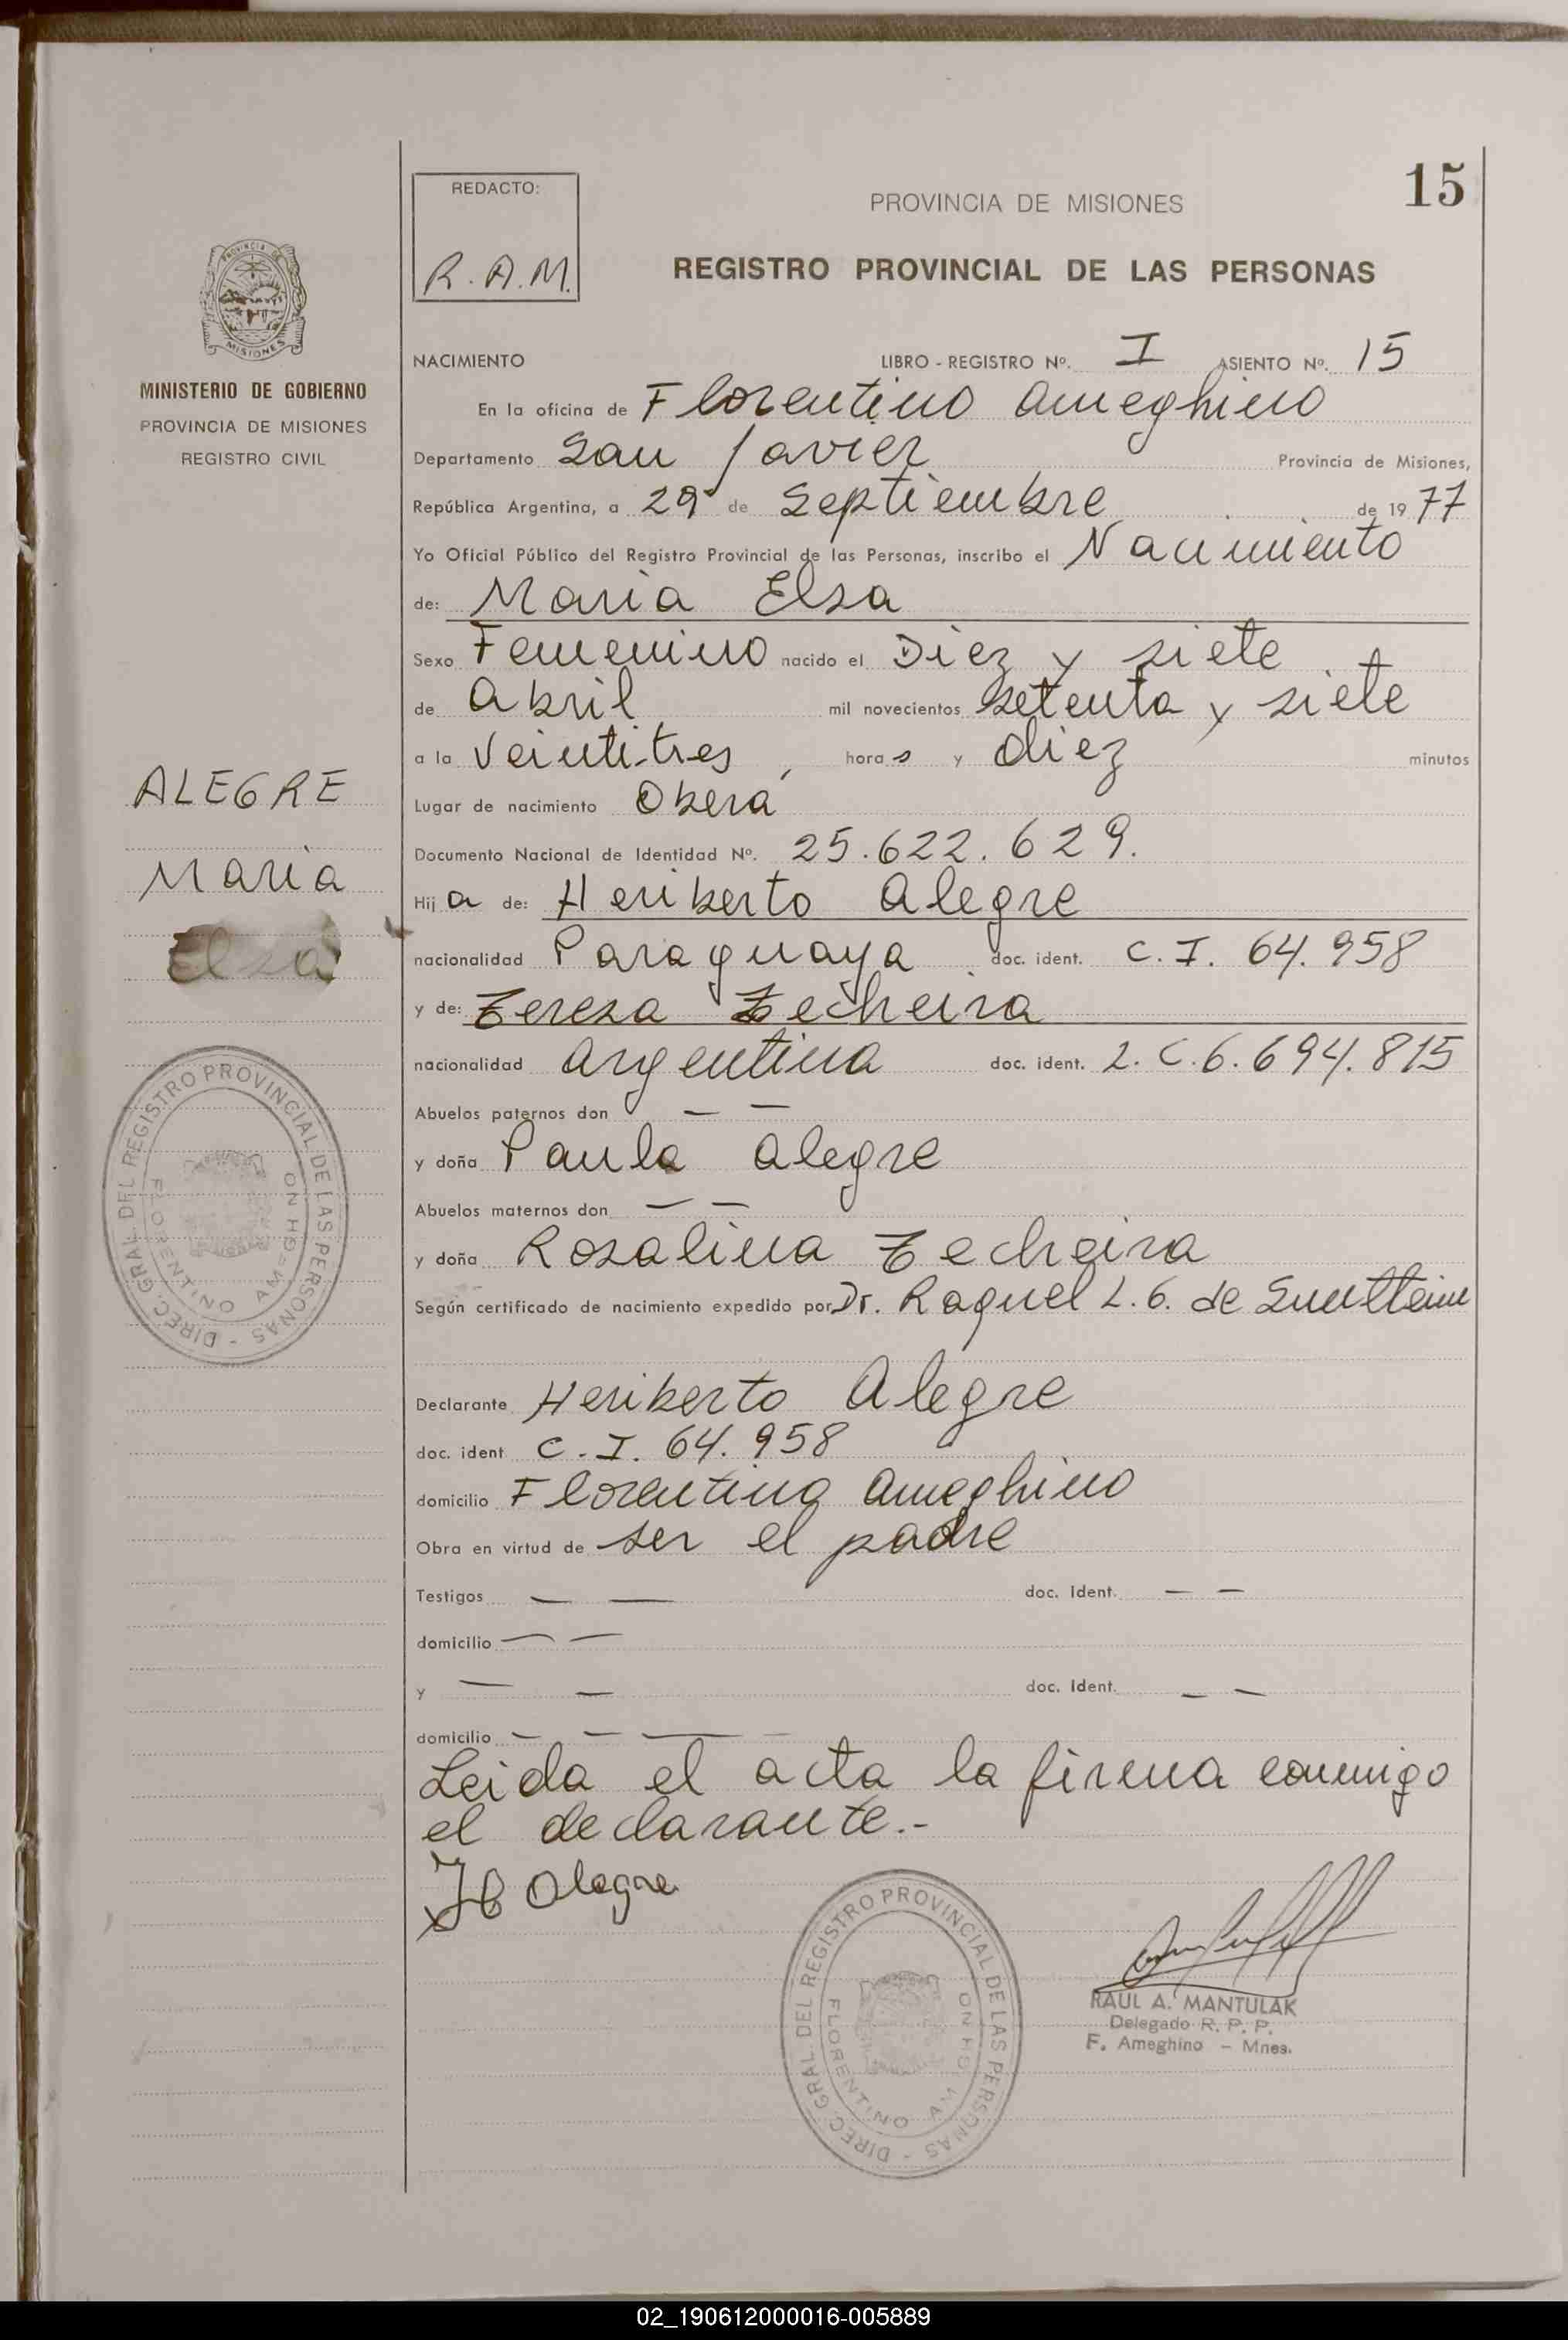 15
REDACTO:
R. A. M.
PROVINCIA DE MISIONES
REGISTRO PROVINCIAL DE LAS PERSONAS
PROVINCIA DE
MISIONES
MINISTERIO DE GOBIERNO
PROVINCIA DE MISIONES
REGISTRO CIVIL
ALEGRE
Maria
Elsa
DIREC. GRAL. DEL REGISTRO PROVINCIAL DE LAS PERSONAS -
FLORENTINO AMEGHINO
NACIMIENTO LIBRO - REGISTRO Nº. I ASIENTO Nº. 15
En la oficina de Florentino Ameghino
Departamento San Javier Provincia de Misiones,
República Argentina, a 29 de Septiembre de 19 77
Yo Oficial Público del Registro Provincial de las Personas, inscribo el Nacimiento
de: Maria Elsa
Sexo Femenino nacido el Diez y siete
de Abril mil novecientos setenta y siete
a la Veintitres, horas y diez minutos
Lugar de nacimiento Oberá
Documento Nacional de Identidad Nº. 25.622.629.
Hija de: Heriberto Alegre
nacionalidad Paraguaya doc. ident. C.I. 64.958
y de: Tereza Techeira
nacionalidad Argentina doc. ident. L.C. 6.694.815
Abuelos paternos don — —
y doña Paula Alegre
Abuelos maternos don — —
y doña Rosalina Techeira
Según certificado de nacimiento expedido por Dr. Raquel L. G. de
Declarante Heriberto Alegre
doc. ident. C.I. 64.958
domicilio Florentino Ameghino
Obra en virtud de ser el padre
Testigos — — doc. Ident. — —
domicilio — —
y — — doc. Ident. — —
domicilio — — — —
Leida el acta la firma conmigo
el declarante.-
H Alegre
DIREC. GRAL. DEL REGISTRO PROVINCIAL DE LAS PERSONAS -
FLORENTINO AMEGHINO
RAUL A. MANTULAK
Delegado R. P. P.
F. Ameghino - Mnes.
02_190612000016-005889